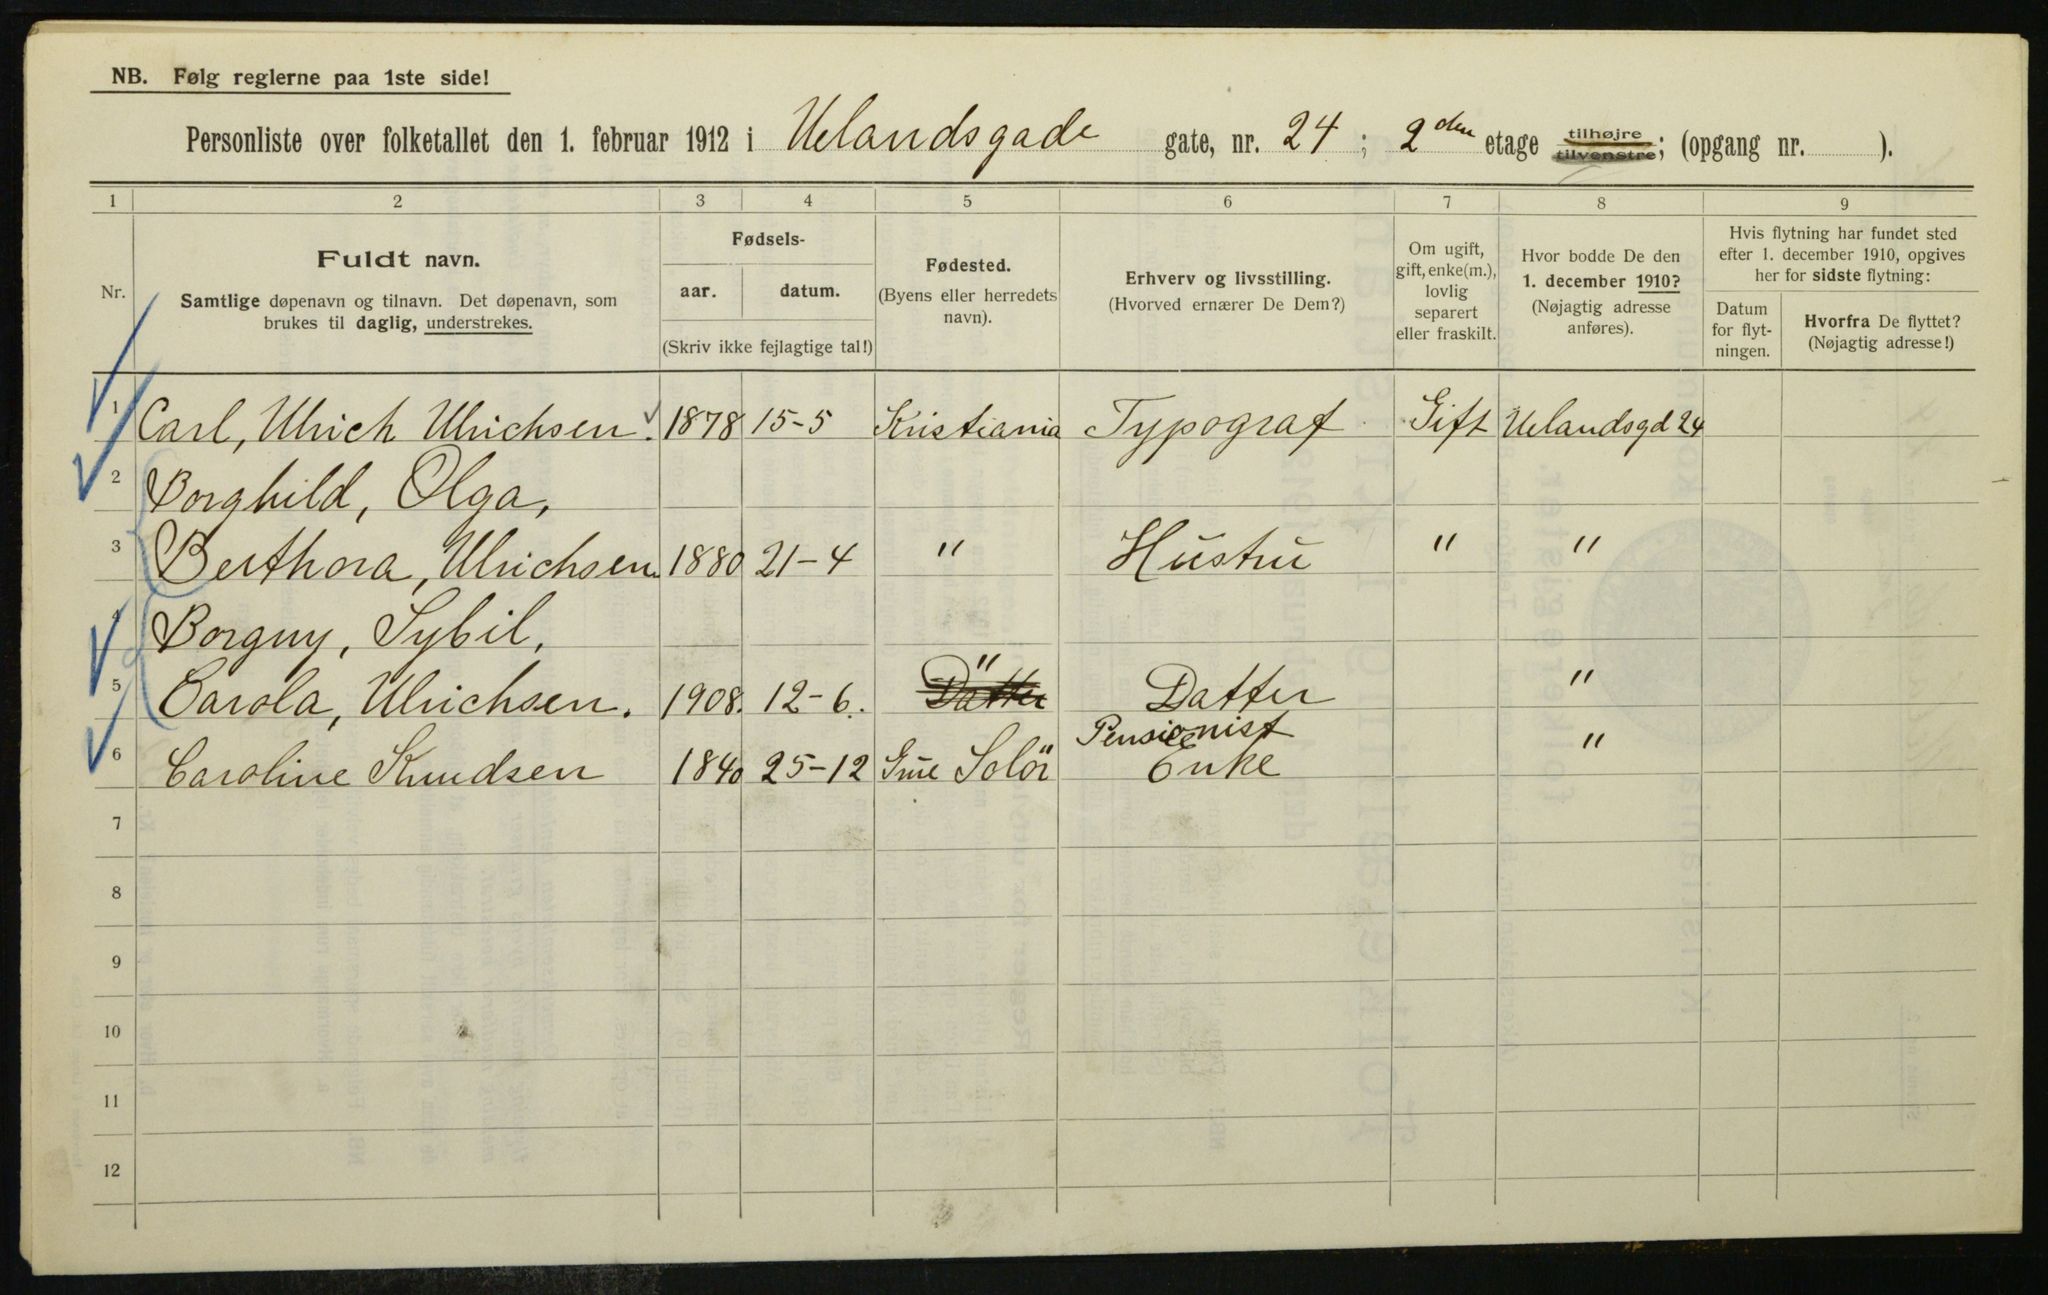 NB. Følg reglerne paa 1ste side!
Personliste over folketallet den 1. februar 1912 i Uelandsgade gate, nr. 24 ; 2den etage tilhøjre tilvenstre; (opgang nr. ).
1 2 3 4 5 6 7 8 9
Nr.
Fuldt navn.
Samtlige døpenavn og tilnavn. Det døpenavn, som
brukes til daglig, understrekes.
Fødsels-
aar. datum.
(Skriv ikke fejlagtige tal!)
Fødested.
(Byens eller herredets
navn).
Erhverv og livsstilling.
(Hvorved ernærer De Dem?)
Om ugift,
gift, enke(m.),
lovlig
separert
eller fraskilt.
Hvor bodde De den
1. december 1910?
(Nøjagtig adresse
anføres).
Hvis flytning har fundet sted
efter 1. december 1910, opgives
her for sidste flytning:
Datum
for flyt-
ningen.
Hvorfra De flyttet?
(Nøjagtig adresse!)
1 Carl, Ulrich Ulrichsen. 1878 15-5 Kristiania Typograf Gift Uelandsgd 24
2 Borghild, Olga,
3 Berthora, Ulrichsen. 1880 21-4 " Hustru " "
4 Borguy, Sybil,
5 Carola, Ulrichsen. 1908. 12-6. " Datter Datter "
6 Caroline Knudsen 1840 25-12 Solör Pensionist Enke "
7
8
9
10
11
12